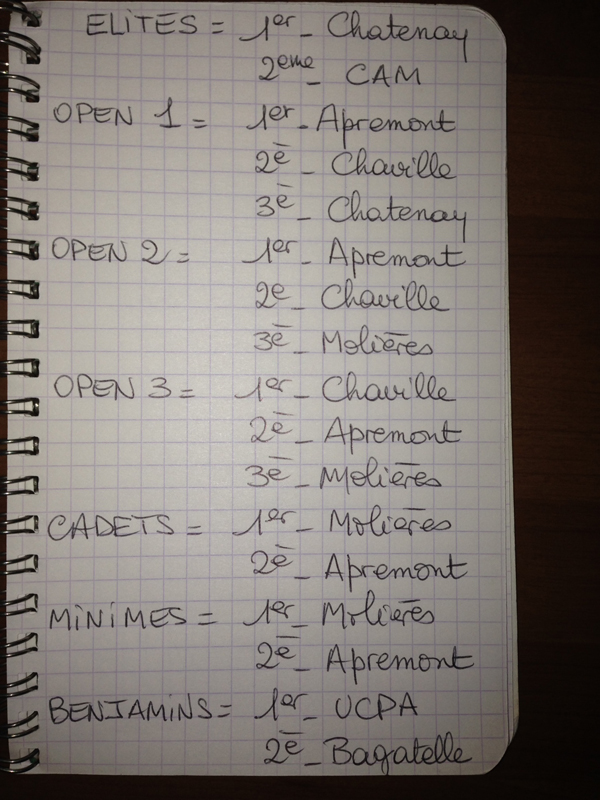 ELiTES = 1er_ Chatenay
2eme_ CAM
OPEN 1 = 1er_ Apremont
2è_ Chaville
3è_ Chatenay
OPEN 2 = 1er_ Apremont
2e_ Chaville
3è_ Molières
OPEN 3 = 1er_ Chaville
2è_ Apremont
3è_ Molières
CADETS = 1er_ Molières
2è_ Apremont
MiNiMES = 1er_ Molières
2è_ Apremont
BENJAMiNS = 1er_ UCPA
2è_ Bagatelle